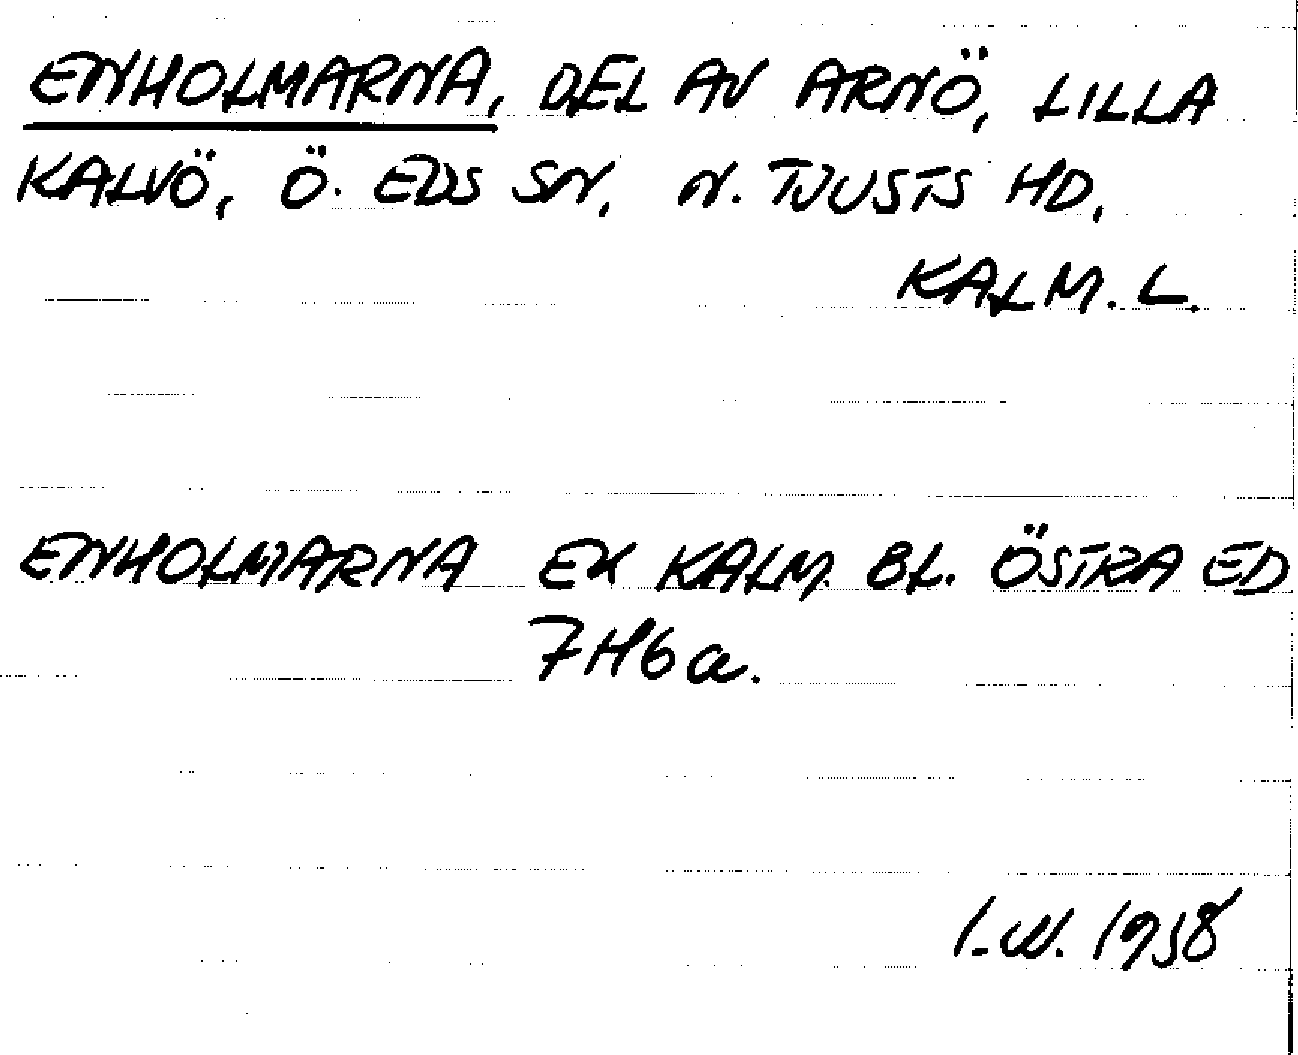 ENHOLMARNA, DEL AV ARNÖ, LILLA
KALVÖ, Ö. EDS SN, N. TJUSTS HD,
KALM. L.
ENHOLMARNA EK KALM. BL. ÖSTRA ED
7H6a.
I.W. 1958